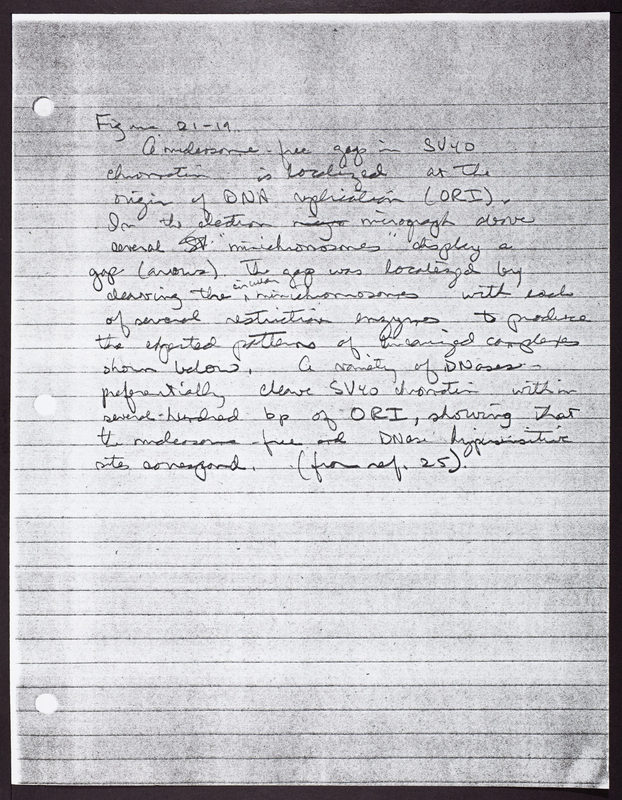 Figure 21-19.
A nucleosome-free gap in SV40
chromatin is localized at the
origin of DNA replication (ORI).
In the electron micrograph above
several "minichromosomes" display a
gap (arrows). The gap was localized by
cleaving the circular minichromosomes with each
of several restriction enzymes to produce
the expected patterns of linearized complexes
shown below. A variety of DNases
preferentially cleave SV40 chromatin within
several-hundred bp of ORI, showing that
the nucleosome-free and DNase hypersensitive
sites correspond. (from ref. 25).